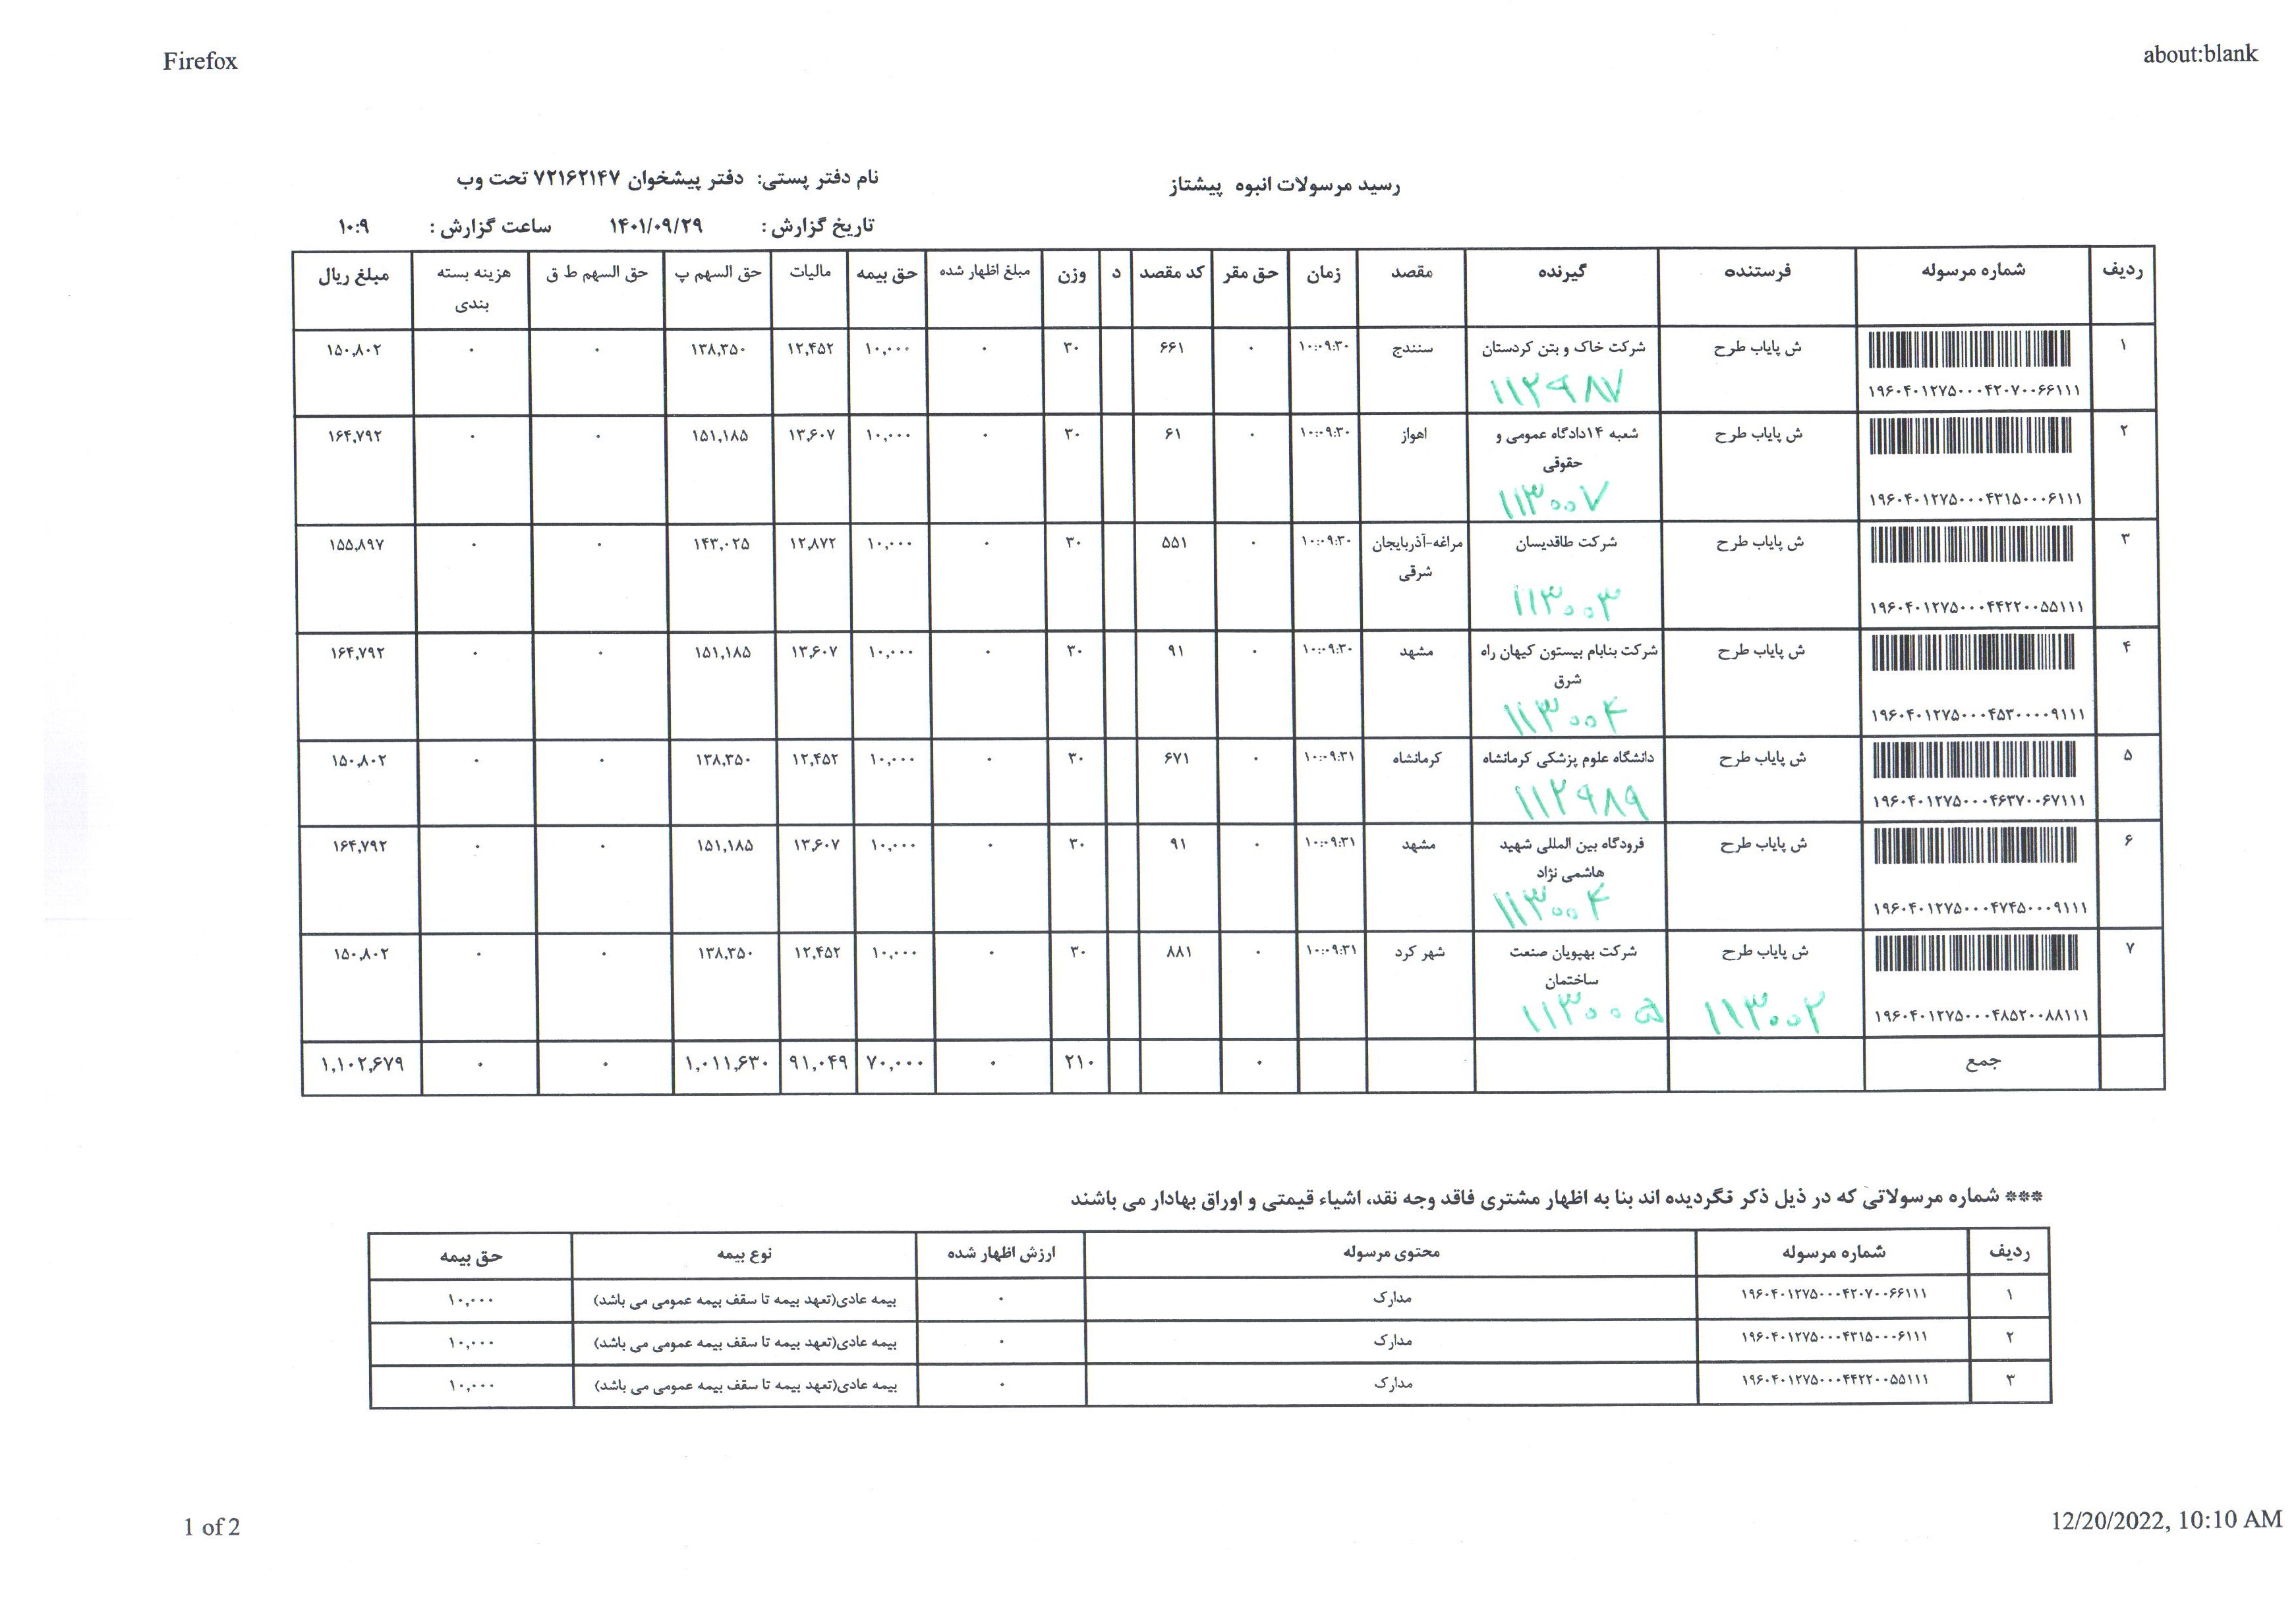 Firefox
about:blank
رسید مرسولات انبوه پیشتاز
نام دفتر پستی: دفتر پیشخوان ۷۲۱۶۲۱۴۷ تحت وب
تاریخ گزارش : ۱۴۰۱/۰۹/۲۹ ساعت گزارش : ۱۰:۹
ردیف شماره مرسوله فرستنده گیرنده مقصد زمان حق مقر کد مقصد د وزن مبلغ اظهار شده حق بیمه مالیات حق السهم پ حق السهم ط ق هزینه بسته بندی مبلغ ریال
۱ ش پایاب طرح شرکت خاک و بتن کردستان سنندج ۱۰:۰۹:۳۰ ۰ ۶۶۱ ۳۰ ۰ ۱۰,۰۰۰ ۱۲,۴۵۲ ۱۳۸,۳۵۰ ۰ ۰ ۱۵۰,۸۰۲
۱۹۶۰۴۰۱۲۷۵۰۰۰۴۲۰۷۰۰۶۶۱۱۱ ۱۱۲۹۸۷
۲ ش پایاب طرح شعبه ۱۴دادگاه عمومی و اهواز ۱۰:۰۹:۳۰ ۰ ۶۱ ۳۰ ۰ ۱۰,۰۰۰ ۱۳,۶۰۷ ۱۵۱,۱۸۵ ۰ ۰ ۱۶۴,۷۹۲
حقوقی
۱۹۶۰۴۰۱۲۷۵۰۰۰۴۳۱۵۰۰۰۶۱۱۱ ۱۱۳۰۰۷
۳ ش پایاب طرح شرکت طاقدیسان مراغه-آذربایجان ۱۰:۰۹:۳۰ ۰ ۵۵۱ ۳۰ ۰ ۱۰,۰۰۰ ۱۲,۸۷۲ ۱۴۳,۰۲۵ ۰ ۰ ۱۵۵,۸۹۷
شرقی
۱۹۶۰۴۰۱۲۷۵۰۰۰۴۴۲۲۰۰۵۵۱۱۱ ۱۱۳۰۰۳
۴ ش پایاب طرح شرکت بنابام بیستون کیهان راه مشهد ۱۰:۰۹:۳۰ ۰ ۹۱ ۳۰ ۰ ۱۰,۰۰۰ ۱۳,۶۰۷ ۱۵۱,۱۸۵ ۰ ۰ ۱۶۴,۷۹۲
شرق
۱۹۶۰۴۰۱۲۷۵۰۰۰۴۵۳۰۰۰۰۹۱۱۱ ۱۱۳۰۰۴
۵ ش پایاب طرح دانشگاه علوم پزشکی کرمانشاه کرمانشاه ۱۰:۰۹:۳۱ ۰ ۶۷۱ ۳۰ ۰ ۱۰,۰۰۰ ۱۲,۴۵۲ ۱۳۸,۳۵۰ ۰ ۰ ۱۵۰,۸۰۲
۱۹۶۰۴۰۱۲۷۵۰۰۰۴۶۳۷۰۰۶۷۱۱۱ ۱۱۲۹۸۹
۶ ش پایاب طرح فرودگاه بین المللی شهید مشهد ۱۰:۰۹:۳۱ ۰ ۹۱ ۳۰ ۰ ۱۰,۰۰۰ ۱۳,۶۰۷ ۱۵۱,۱۸۵ ۰ ۰ ۱۶۴,۷۹۲
هاشمی نژاد
۱۹۶۰۴۰۱۲۷۵۰۰۰۴۷۴۵۰۰۰۹۱۱۱ ۱۱۳۰۰۴
۷ ش پایاب طرح شرکت بهپویان صنعت شهر کرد ۱۰:۰۹:۳۱ ۰ ۸۸۱ ۳۰ ۰ ۱۰,۰۰۰ ۱۲,۴۵۲ ۱۳۸,۳۵۰ ۰ ۰ ۱۵۰,۸۰۲
ساختمان
۱۹۶۰۴۰۱۲۷۵۰۰۰۴۸۵۲۰۰۸۸۱۱۱ ۱۱۳۰۰۲ ۱۱۳۰۰۵
جمع ۰ ۲۱۰ ۰ ۷۰,۰۰۰ ۹۱,۰۴۹ ۱,۰۱۱,۶۳۰ ۰ ۰ ۱,۱۰۲,۶۷۹
*** شماره مرسولاتی که در ذیل ذکر نگردیده اند بنا به اظهار مشتری فاقد وجه نقد، اشیاء قیمتی و اوراق بهادار می باشند
ردیف شماره مرسوله محتوی مرسوله ارزش اظهار شده نوع بیمه حق بیمه
۱ ۱۹۶۰۴۰۱۲۷۵۰۰۰۴۲۰۷۰۰۶۶۱۱۱ مدارک ۰ بیمه عادی(تعهد بیمه تا سقف بیمه عمومی می باشد) ۱۰,۰۰۰
۲ ۱۹۶۰۴۰۱۲۷۵۰۰۰۴۳۱۵۰۰۰۶۱۱۱ مدارک ۰ بیمه عادی(تعهد بیمه تا سقف بیمه عمومی می باشد) ۱۰,۰۰۰
۳ ۱۹۶۰۴۰۱۲۷۵۰۰۰۴۴۲۲۰۰۵۵۱۱۱ مدارک ۰ بیمه عادی(تعهد بیمه تا سقف بیمه عمومی می باشد) ۱۰,۰۰۰
1 of 2
12/20/2022, 10:10 AM